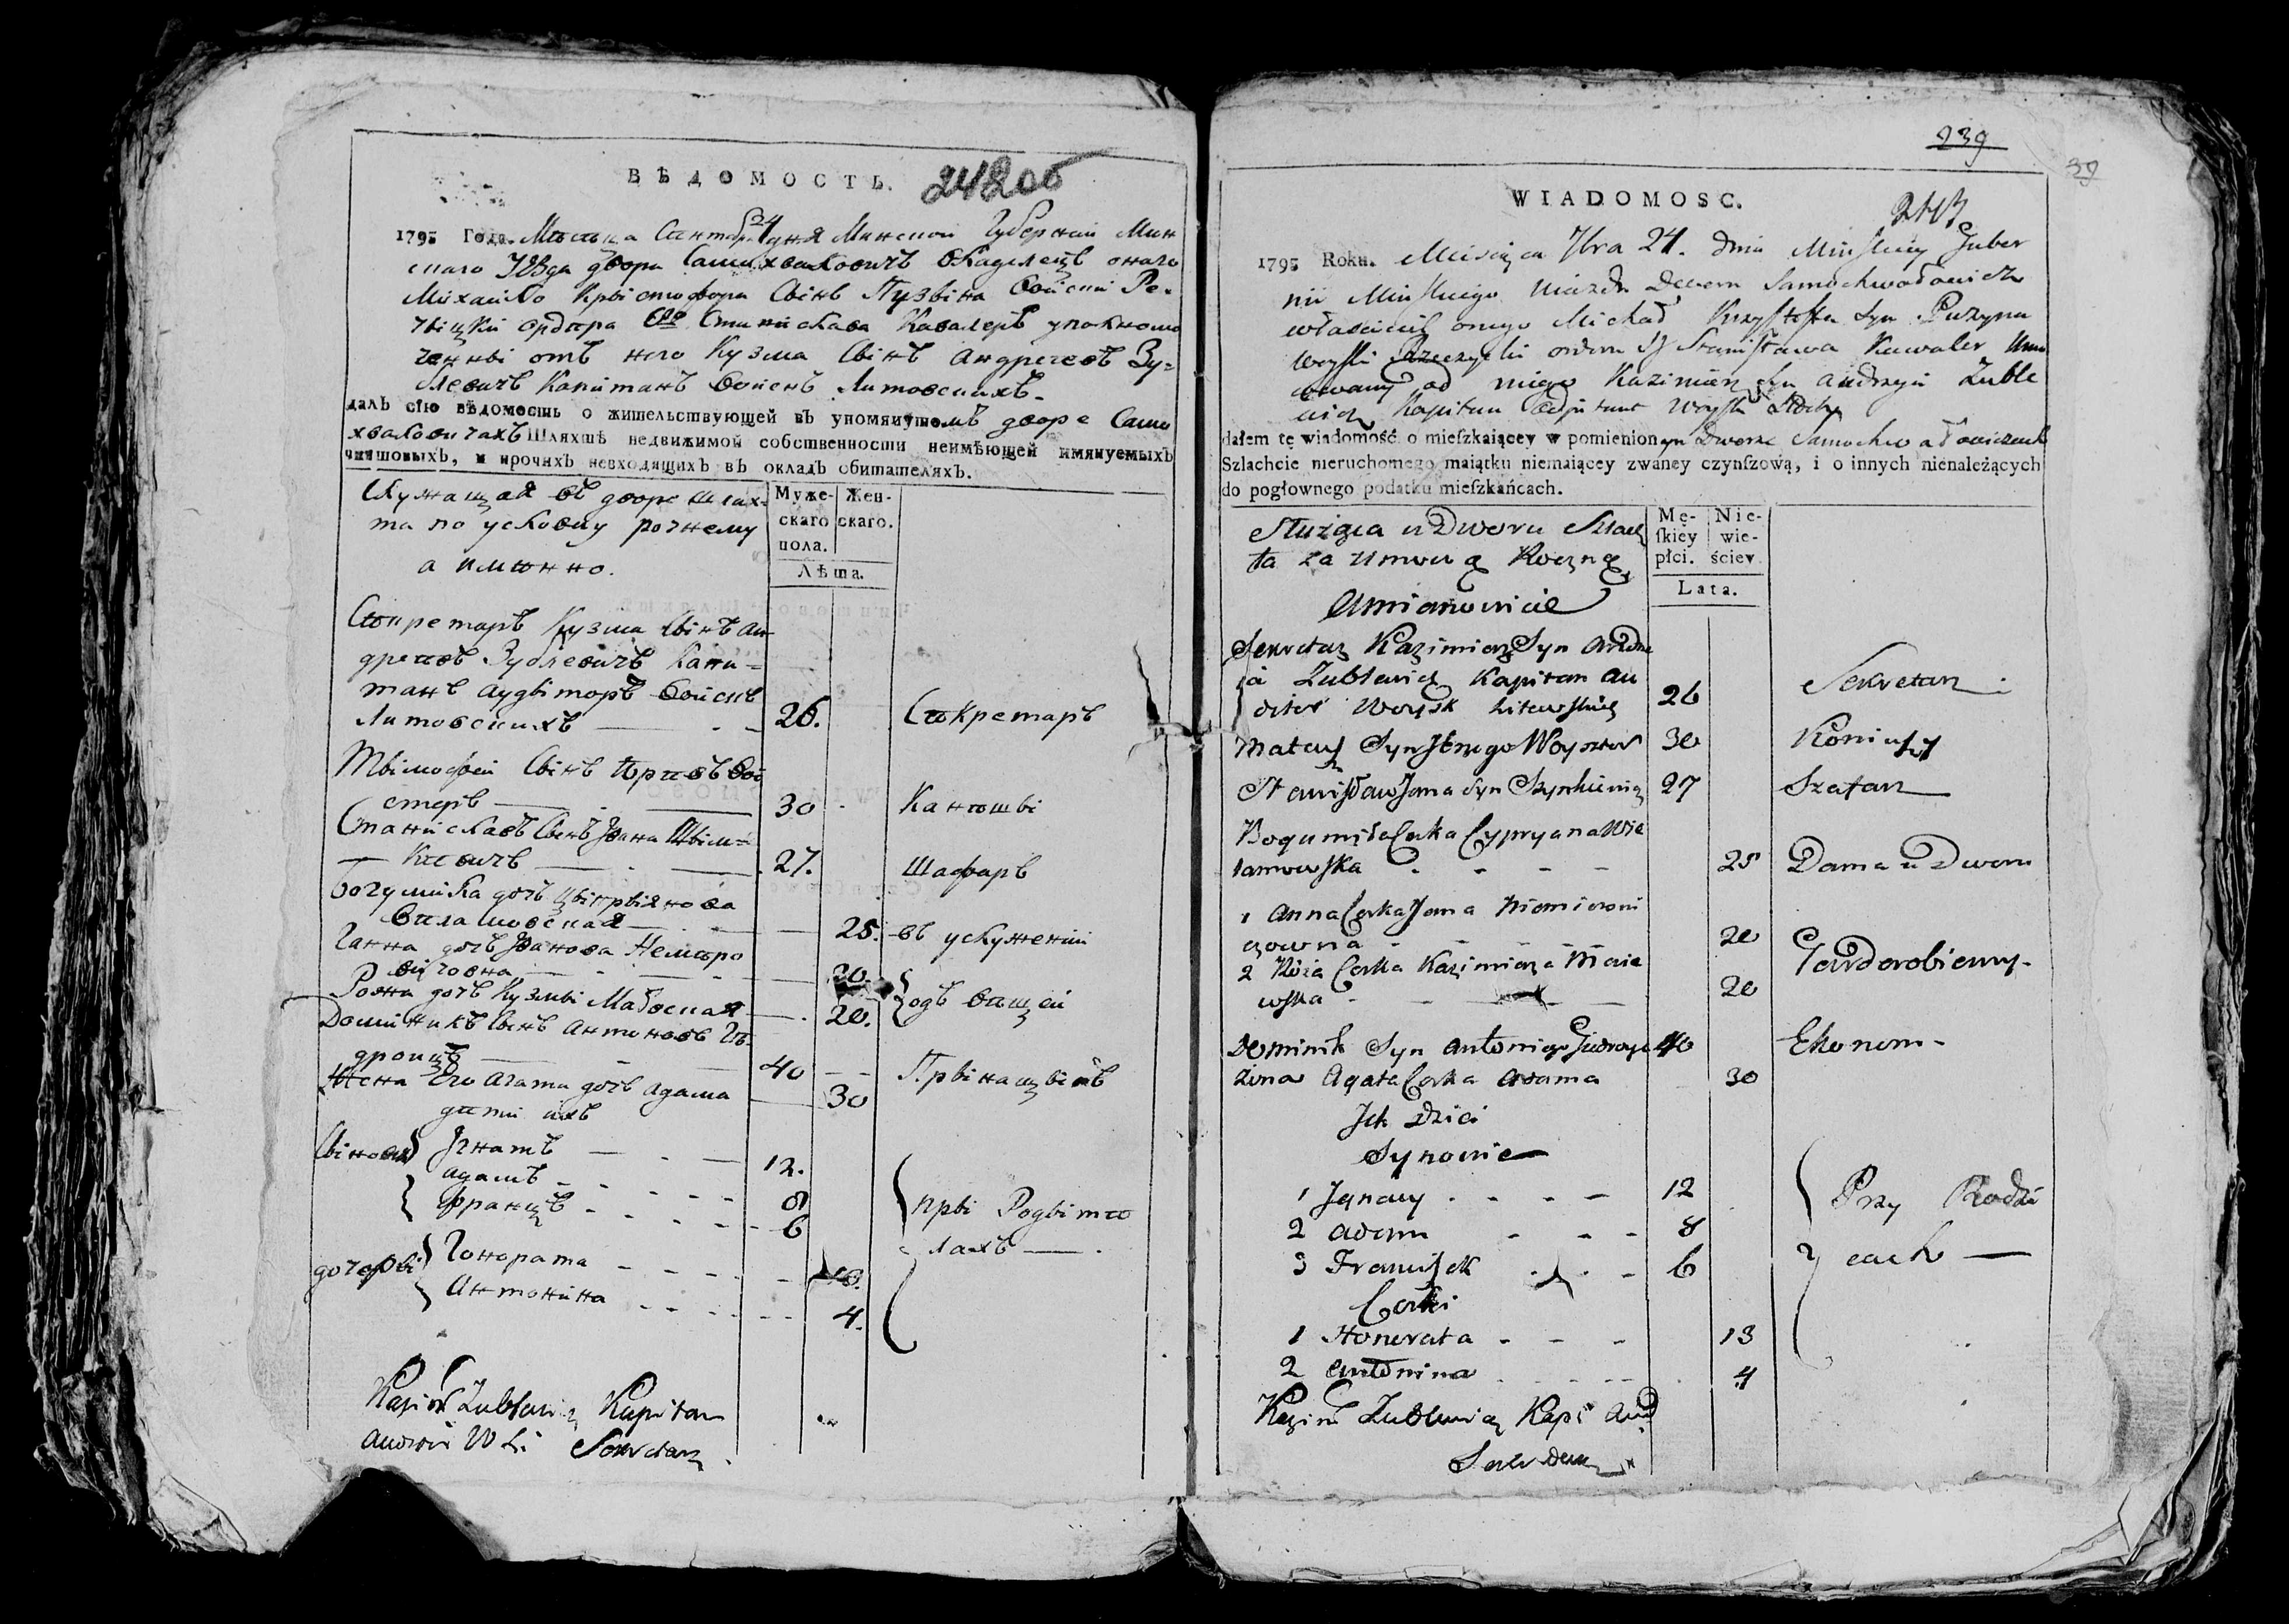 ВѢДОМОСТЬ. 242об
1795 Года. Мѣсяца Сентября 24 дня Минской Губерніи Мин
скаго Уѣзда двора Самохваловичъ владелецъ онаго
Михайло Крыстофора Сынъ Пузына Войскій Ре-
чыцкій ордера Стго Станислава Кавалеръ уполномо
ченны отъ него Кузма Сынъ Андреевъ Зу-
блевичъ Капитанъ войскъ Литовскихъ
далъ сію вѣдомость о жительствующей въ упомянутомъ дворе Само
хваловичахъ Шляхтѣ недвижимой собственности неимѣющей имянуемыхъ
чиншовыхъ, и прочихъ невходящихъ въ окладъ обитателяхъ.
Служащая въ дворе шлях-
та по условиу рочнему
а имянно.
Муже-
скаго
пола.
Жен-
скаго.
Лѣта.
Секретаръ Кузма сынъ Ан-
дреевъ Зублевичъ Капи-
танъ аудыторъ войскъ
Литовскихъ 26. Секретаръ
Тымофей Сынъ Юрьевъ Вой
стеръ 30 Канюшы
Станиславъ Сынъ Ивана Шым-
кевичъ 27. Шафаръ
Богумила дочъ Цыпрыянова
Виламовская 25. въ услуженіи
Ганна дочъ Иванова Немиро
вичовна 20.
Рожа дочъ Кузмы Маевская 20. одъ вящей
Доминикъ Сынъ Антоновъ Ге-
дроицъ 40
Жена Его Агата дочъ Адама 30
дети ихъ
Сыновя Игнатъ 12.
Адамъ 8
Францъ 6
при Родыте
лахъ
дочеры Гонората 13.
Антонина 4.
Kazim Zublewicz Kapitan
Audytor W Li Sekretarz
239
39
WIADOMOSC.
243
1795 Roku. Miesiąca 7bra 24. dnia Minskiey Guber
nii Minskiego Uiazdu Dworu Samochwałowicz
właściciel onego Michał Krzysztofa Syn Puzyna
Woyski Rzeczycki orderu S Stanisława Kawaler Umo
cowany od niego Kazimierz Syn Andrzeja Zuble
wicz Kapitan Woysk
dałem tę wiadomość o mieſzkaiącey w pomienionym Dworze Samochwałowiczach
Szlachcie nieruchomego maiątku niemaiącey zwáney czynſzową, i o innych nienależących
do pogłownego podatku mieſzkańcach.
Służąca u Dworu Szlach
ta za Umową Roczną
Amianowicie
Mę-
ſkiey
płci.
Nie-
wie-
ściey
Lata.
Sekretarz Kazimierz Syn Andrze
ia Zublewicz Kapitan Au
ditor Woysk Litewskich 26 Sekretarz
Mateusz Syn Jerzego Woyszter 30 Koniuszy
Stanisław Jana Syn Szymkiewicz 27 Szafarz
Bogumiła Corka Cypryana Wie
lamowska 25 Dama u Dworu
1 Anna Corka Jana Niemierowi
czowna 20
2 Róża Corka Kazimierza Maie
wska 20
Garderobianny
Dominik Syn Antoniego Giedroyc 40 Ekonom
Zona Agata Corka Adama 30
Jch Dzieci
Synowie
1 Jgnacy 12
2 Adam 8
3 Franciszek 6
Przy Rodzi
cach
Corki
1 Honorata 13
2 Antonina 4
Kazim Zublewicz Kapi Aud
Sekretarz